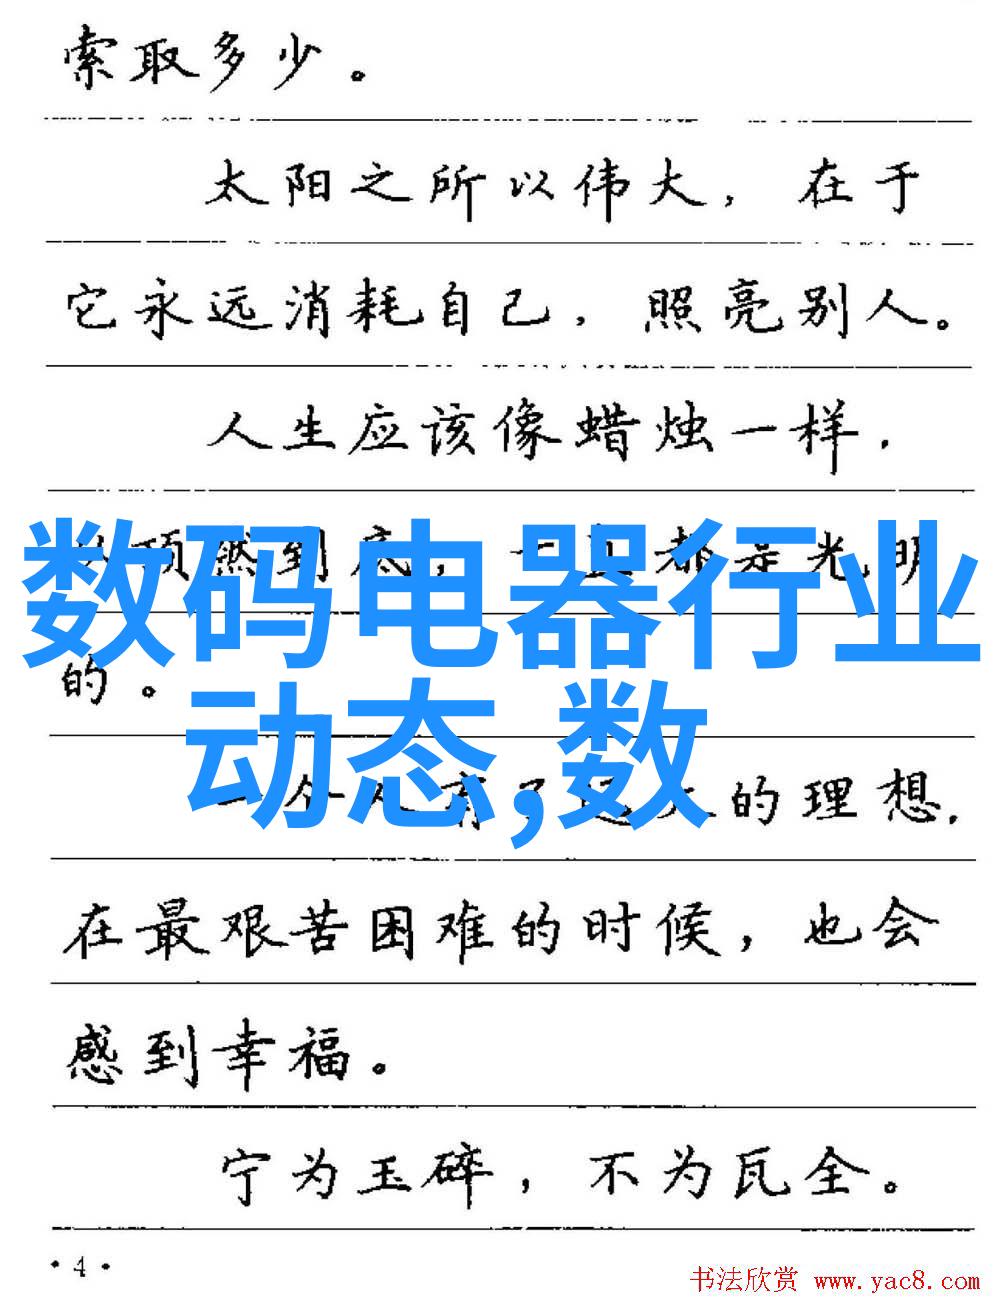 索取多少。
太阳之所以伟大，在于
它永远消耗自己，照亮别人。
人生应该像蜡烛一样，
从顶燃到底，一直都是光明
的。
数码电器行业
动态,数
一个人有了远大的理想，
在最艰苦困难的时候，也会
感到幸福。
宁为玉碎，不为瓦全。
·4·
书法欣赏 www.yac8.com